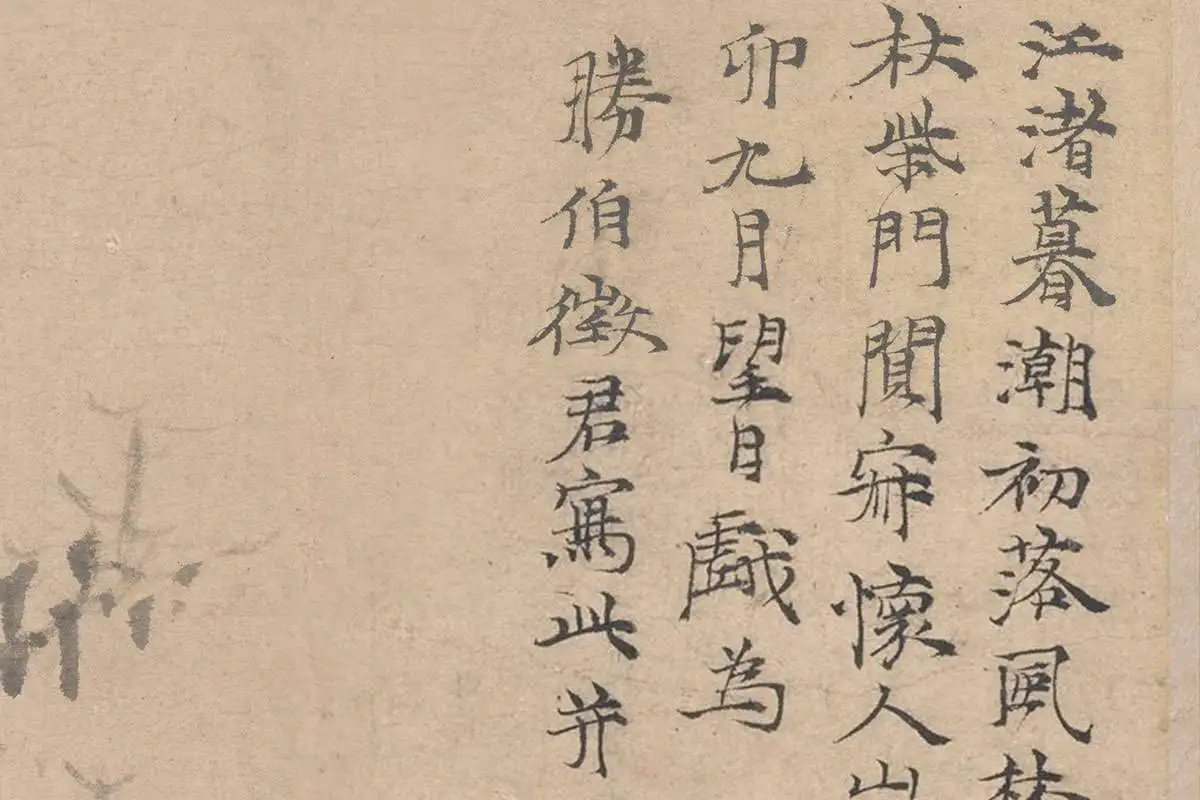 江渚暮潮初落風林
杖柴門闃寂懷人山
卯九月望日戲為
勝伯徵君寫此并